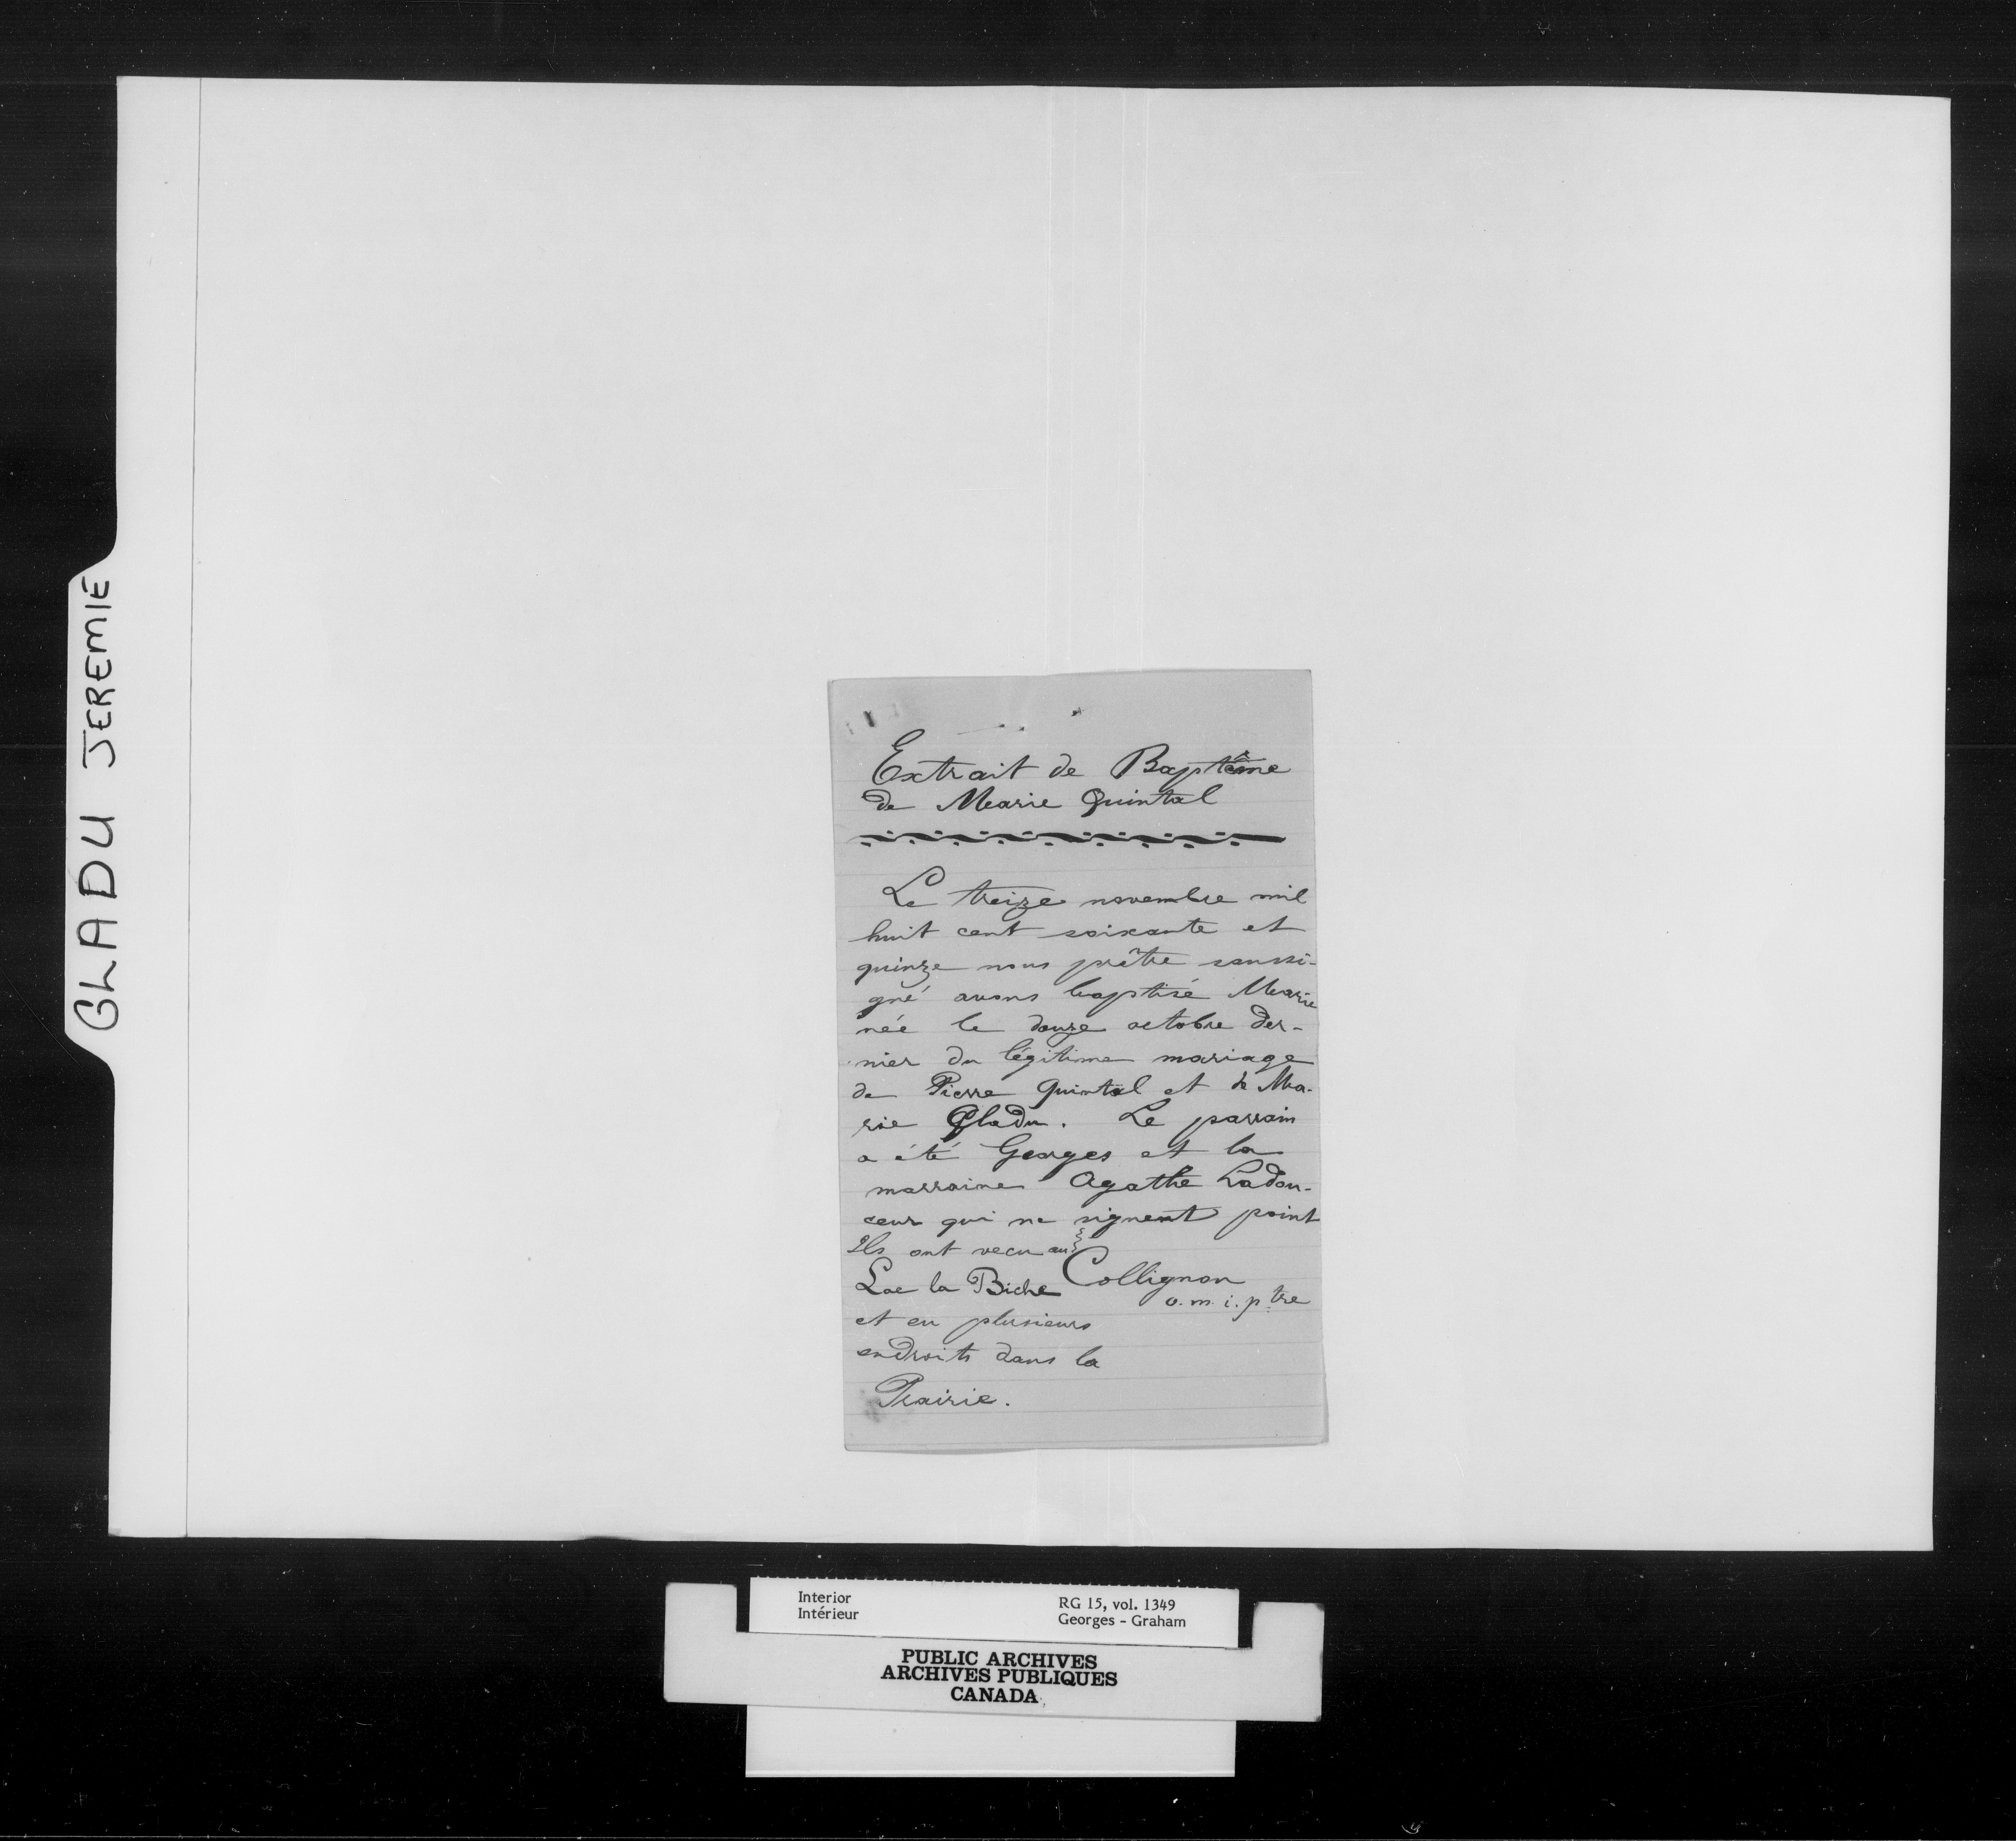 GLADU JEREMIE
Extrait de Baptême
de Marie Quintal
Le treize novembre mil
huit cent soixante et
quinze nous prêtre soussi-
gné avons baptisé Marie
née le douze octobre der-
nier du légitime mariage
de Pierre Quintal et de Ma-
rie Gladu. Le parrain
a été Georges et la
marraine Agathe Ladou-
ceur qui ne signent point
Ils ont vecu au
Lac la Biche Collignon
o.m.i. ptre
et en plusieurs
endroits dans la
Prairie.
Interior
Intérieur
RG 15, vol. 1349
Georges - Graham
PUBLIC ARCHIVES
ARCHIVES PUBLIQUES
CANADA